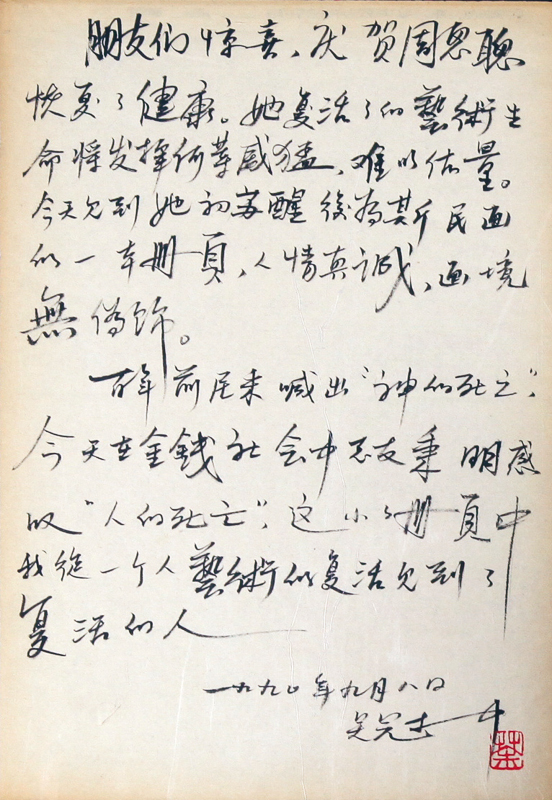 朋友们惊喜、庆贺周惠聰
恢复了健康。她复活了的藝術生
命将发挥何等威猛,难以估量。
今天见到她初苏醒後为斯民画
的一本册頁,人情真诚,画境
無偽饰。
百年前尼采喊出“神的死亡”,
今天在金錢社会中老友秉明感
叹“人的死亡”,这小小册頁中
我從一个人藝術的复活见到了
复活的人
一九九〇年九月八日
吴冠中
荼